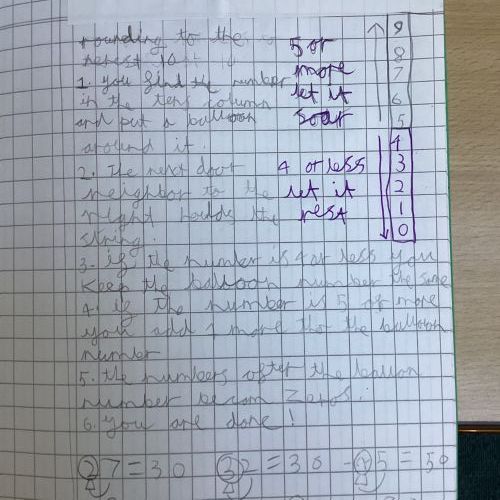 rounding to the
nerest 10
1. you find the number
in the tens column
and put a balloon
around it.
2. The next door
neighbor to the
right holds the
string.
3. if the number is 4 or less you
keep the balloon number the same
4. if the number is 5 or more
you add 1 more the
number
5. the numbers after the
number becom zeros.
6. you are done!
27 = 30 32 = 30 45 = 50
5 or
more
let it
soar
4 or less
let it
rest
9
8
7
6
5
4
3
2
1
0